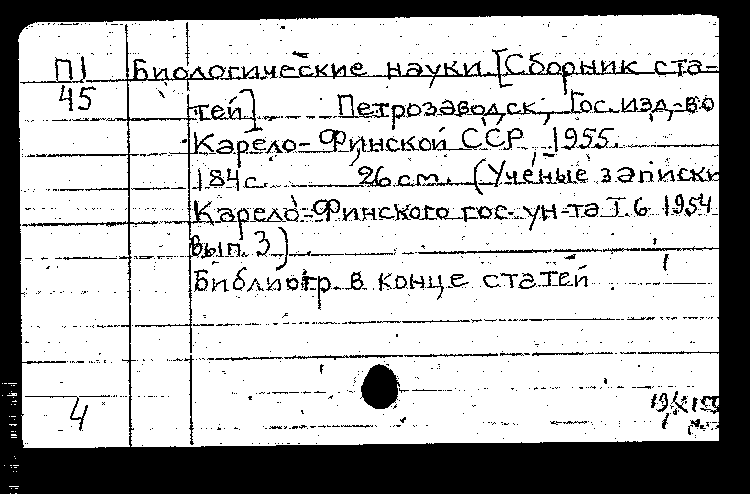 П1 Биологические науки. [Сборник ста-
45 тей]. Петрозаводск, Гос. изд-во
Карело-Финской ССР, 1955.
184с. 26 см. (Учёные записки
Карело-Финского гос. ун-та Т. 6 1954
вып. 3).
Библиогр. в конце статей.
4